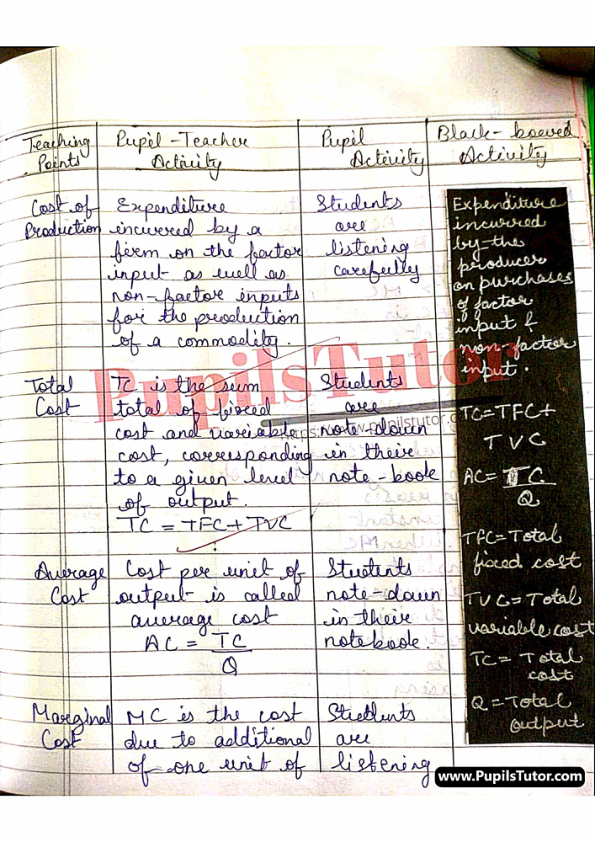 Teaching Points
Pupil-Teacher Activity
Pupil Activity
Black-board Activity
Cost of Production
Expenditure
incurred by a
firm on the factor
input as well as
non-factor inputs
for the production
of a commodity.
Students
are
listening
carefully
Expenditure
incurred
by the
producer
on purchases
of factor
input &
non-factor
input.
Total
Cost
TC is the sum
total of fixed
cost and variable
cost, corresponding
to a given level
of output.
TC = TFC + TVC
Students
are
note-down
in their
note-book
TC = TFC +
TVC
AC = TC
Q
TFC = Total
fixed cost
TVC = Total
variable cost
TC = Total
cost
Q = Total
output
Average
Cost
Cost per unit of
output is called
average cost
AC = TC
Q
Students
note-down
in their
notebook.
Marginal
Cost
MC is the cost
due to additional
of one unit of
Students
are
listening
PupilsTutor
www.pupilstutor.
www.PupilsTutor.com